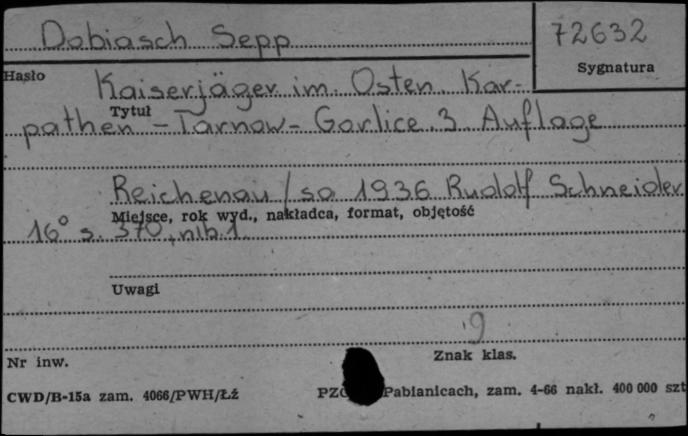 Dobiasch Sepp
72632
Hasło
Sygnatura
Kaiserjäger im Osten. Kar-
Tytuł
pathen - Tarnow - Gorlice. 3 Auflage
Reichenau / sa 1936 Rudolf Schneider
Miejsce, rok wyd., nakładca, format, objętość
16° s. 370, nlb. 1.
Uwagi
9
Nr inw.
Znak klas.
CWD/B-15a zam. 4066/PWH/Łź
Pabianicach, zam. 4-66 nakł. 400 000 szt